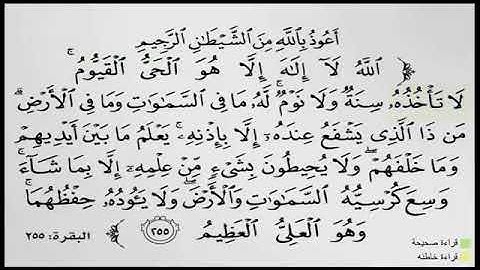 أَعُوذُ بِٱللَّهِ مِنَ ٱلشَّيْطَٰنِ ٱلرَّجِيمِ
ٱللَّهُ لَآ إِلَٰهَ إِلَّا هُوَ ٱلْحَىُّ ٱلْقَيُّومُ ۚ
لَا تَأْخُذُهُۥ سِنَةٌ وَلَا نَوْمٌ ۚ لَّهُۥ مَا فِى ٱلسَّمَٰوَٰتِ وَمَا فِى ٱلْأَرْضِ ۗ
مَن ذَا ٱلَّذِى يَشْفَعُ عِندَهُۥٓ إِلَّا بِإِذْنِهِۦ ۚ يَعْلَمُ مَا بَيْنَ أَيْدِيهِمْ
وَمَا خَلْفَهُمْ ۖ وَلَا يُحِيطُونَ بِشَىْءٍ مِّنْ عِلْمِهِۦٓ إِلَّا بِمَا شَآءَ ۚ
وَسِعَ كُرْسِيُّهُ ٱلسَّمَٰوَٰتِ وَٱلْأَرْضَ ۖ وَلَا يَـُٔودُهُۥ حِفْظُهُمَا ۚ
وَهُوَ ٱلْعَلِىُّ ٱلْعَظِيمُ ٢٥٥ البقرة: ٢٥٥
قراءة صحيحة
قراءة خاطئه